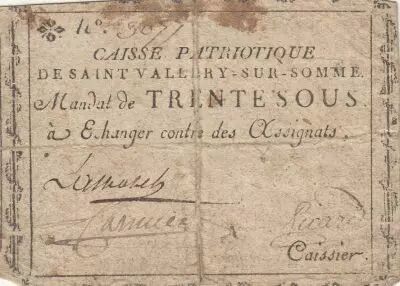 N.º 3077
CAISSE PATRIOTIQUE
DE SAINT VALLERY-SUR-SOMME.
Mandat de TRENTE SOUS
à Echanger contre des Assignats.
Picard
Caissier.